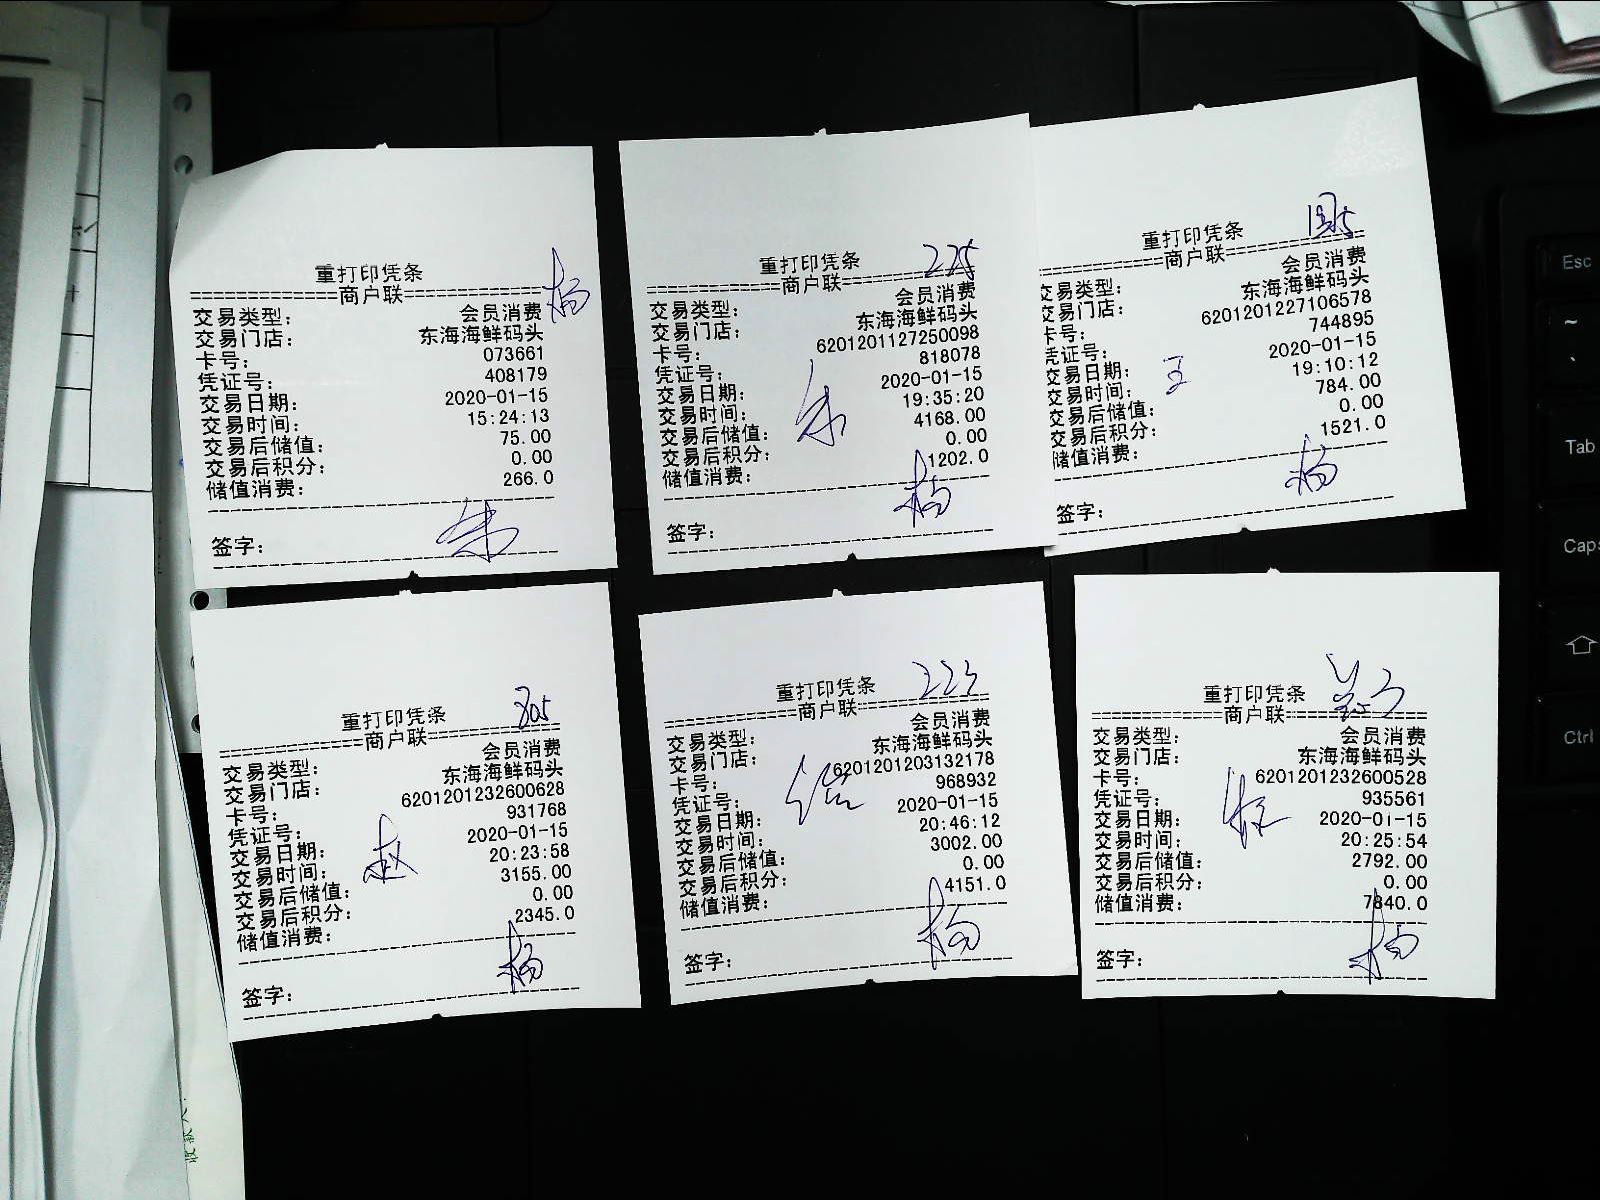 重打印凭条
==============商户联==============
交易类型： 会员消费
交易门店： 东海海鲜码头
卡号： 073661
凭证号： 408179
交易日期： 2020-01-15
交易时间： 15:24:13
交易后储值： 75.00
交易后积分： 0.00
储值消费： 266.0
签字： 朱
杨
重打印凭条 225
==============商户联==============
交易类型： 会员消费
交易门店： 东海海鲜码头
卡号： 6201201127250098
凭证号： 818078
交易日期： 2020-01-15
交易时间： 19:35:20
交易后储值： 4168.00
交易后积分： 0.00
储值消费： 1202.0
朱
杨
签字：
重打印凭条
==============商户联==============
交易类型： 会员消费
交易门店： 东海海鲜码头
卡号： 6201201227106578
凭证号： 744895
交易日期： 2020-01-15
交易时间： 19:10:12
交易后储值： 784.00
交易后积分： 0.00
储值消费： 1521.0
王
杨
签字：
重打印凭条 305
==============商户联==============
交易类型： 会员消费
交易门店： 东海海鲜码头
卡号： 6201201232600628
凭证号： 931768
交易日期： 2020-01-15
交易时间： 20:23:58
交易后储值： 3155.00
交易后积分： 0.00
储值消费： 2345.0
赵
杨
签字：
重打印凭条 223
==============商户联==============
交易类型： 会员消费
交易门店： 东海海鲜码头
卡号： 6201201203132178
凭证号： 968932
交易日期： 2020-01-15
交易时间： 20:46:12
交易后储值： 3002.00
交易后积分： 0.00
储值消费： 4151.0
杨
签字：
重打印凭条
==============商户联==============
交易类型： 会员消费
交易门店： 东海海鲜码头
卡号： 6201201232600528
凭证号： 935561
交易日期： 2020-01-15
交易时间： 20:25:54
交易后储值： 2792.00
交易后积分： 0.00
储值消费： 7840.0
杨
签字：
Esc
~
Tab
Caps
Ctrl